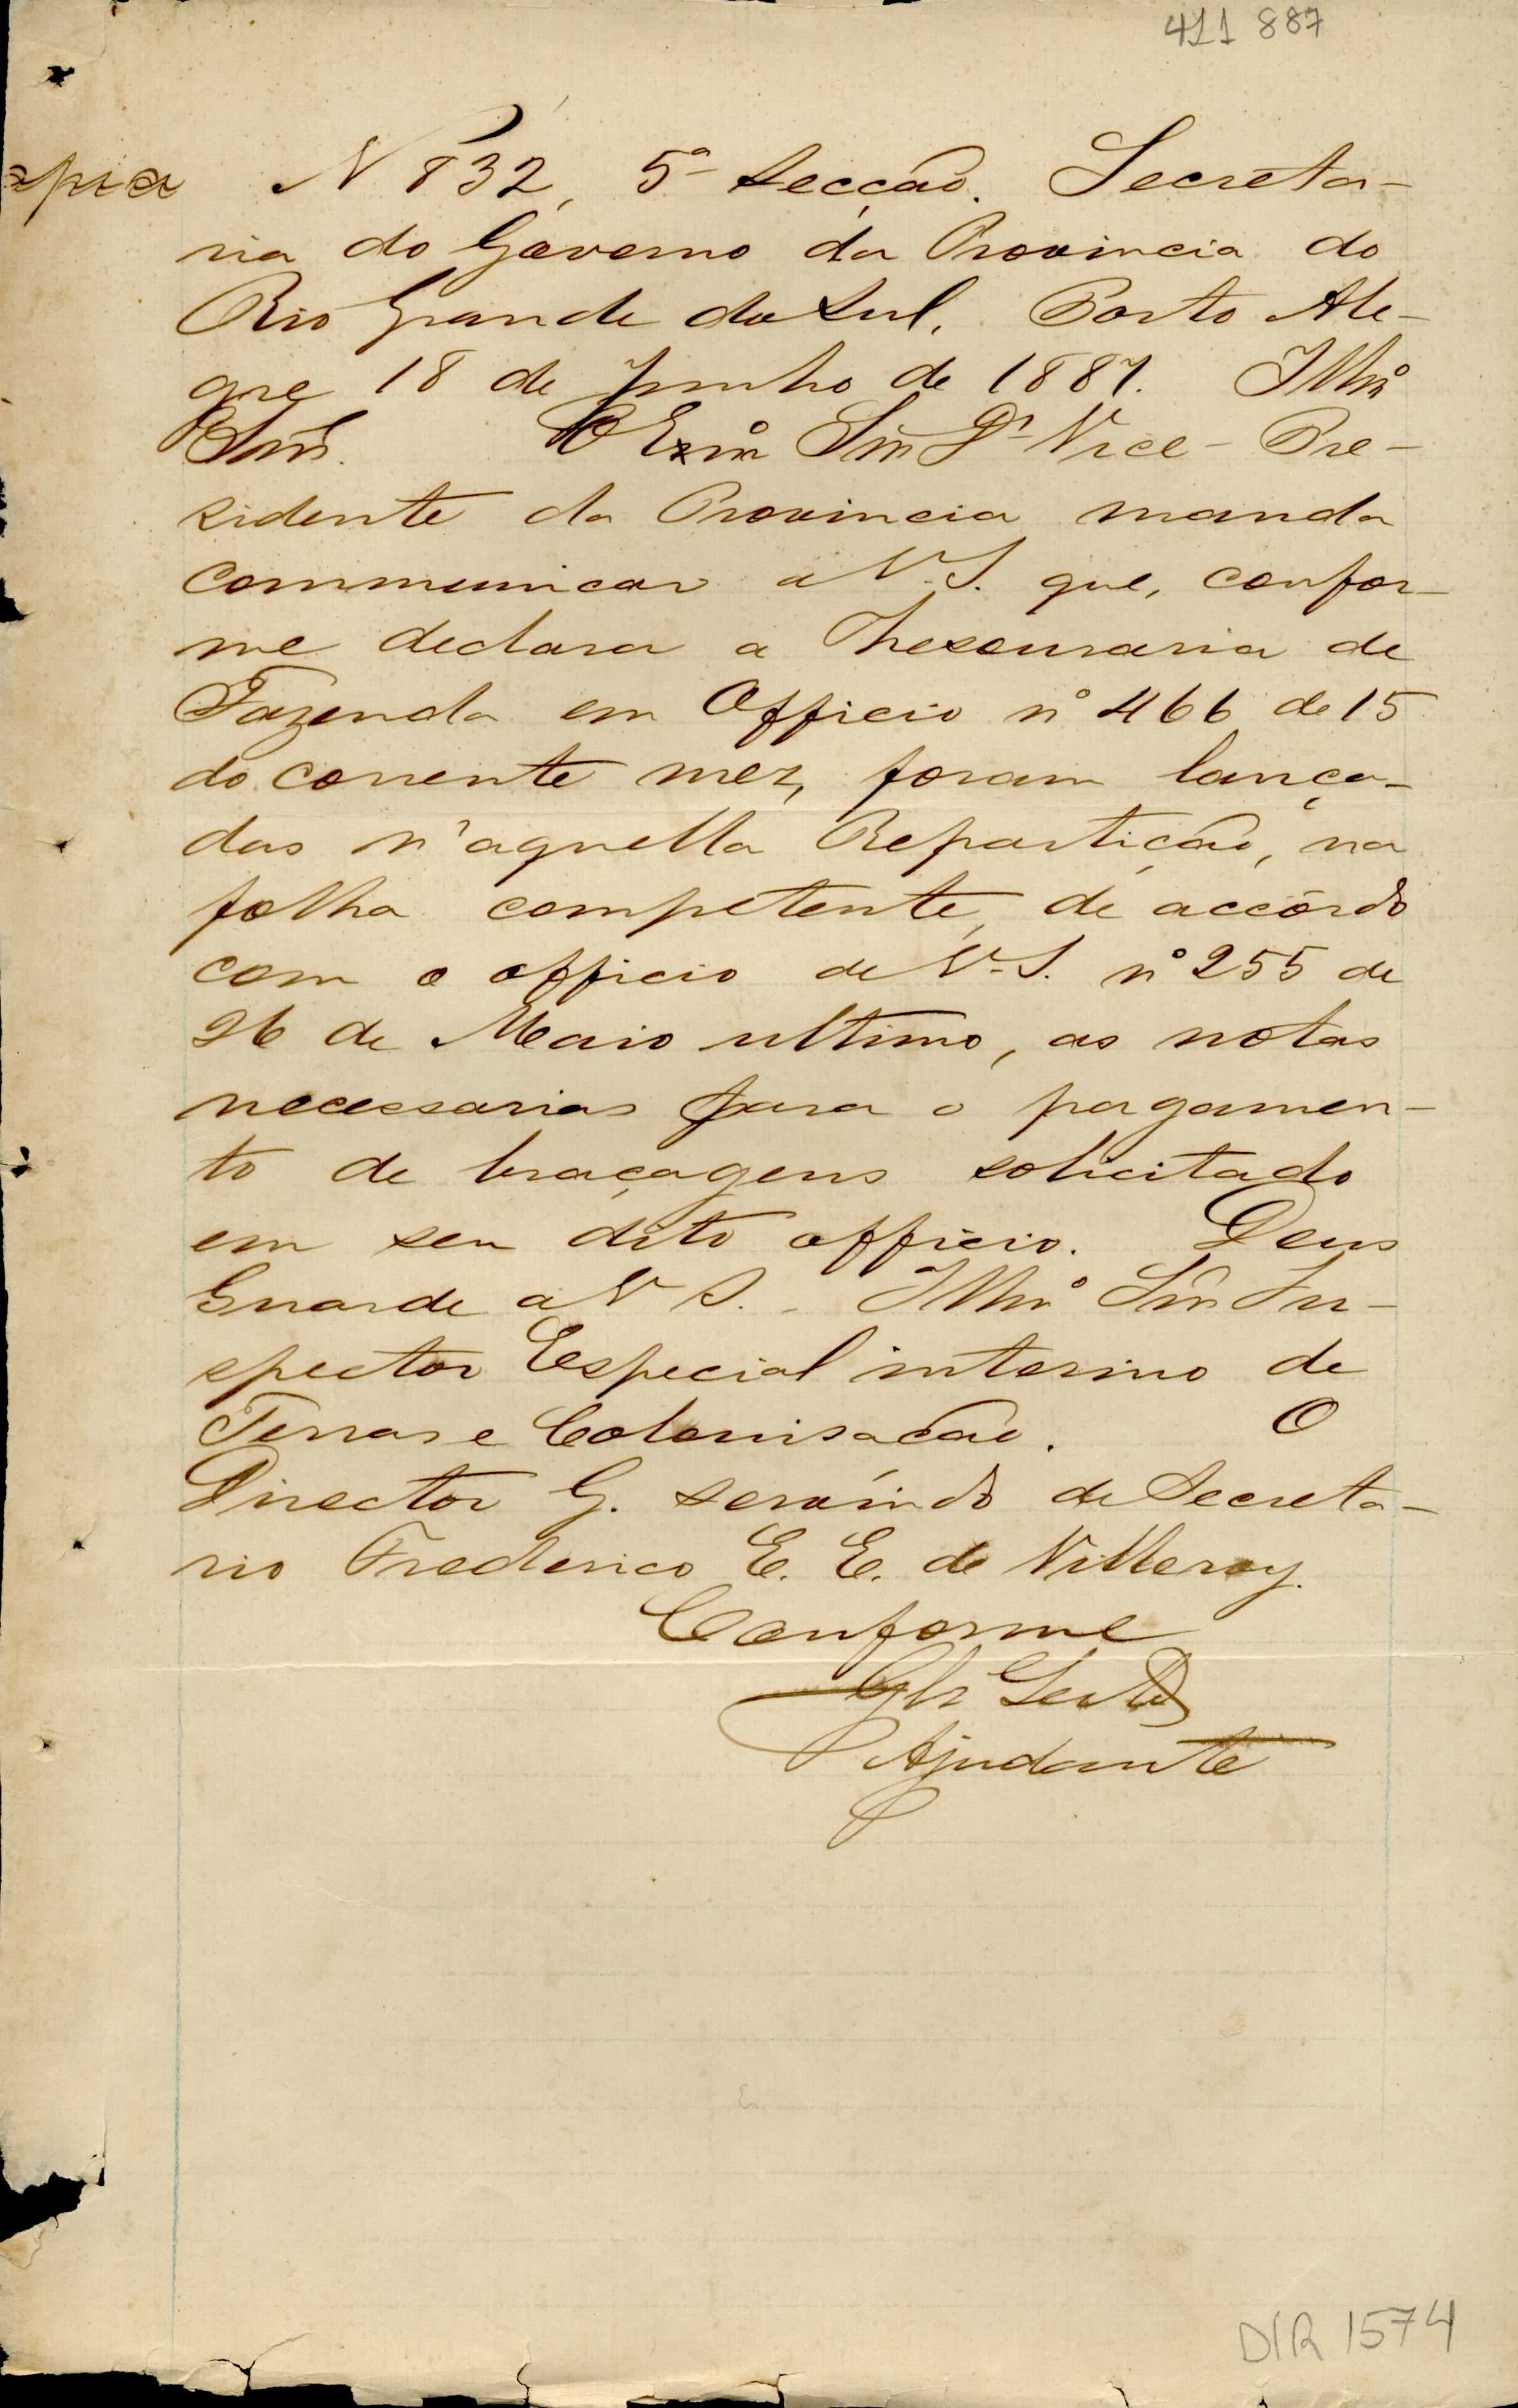 411 887
opia N 832, 5ª Secção. Secreta-
ria do Governo da Provincia do
Rio Grande do Sul. Porto Ale-
gre 18 de Junho de 1887. Illmº
Snr. O Exmº Snr Dr Vice-Pre-
sidente da Provincia manda
communicar a V. S. que, confor-
me declara a Thesouraria de
Fazenda em Officio nº 466 de 15
do corrente mez, foram lança-
das n'aquella Repartição, na
folha competente, de accôrdo
com o officio de V. S. nº 255 de
26 de Maio ultimo, as notas
necessarias para o pagamen-
to de braçagens solicitado
em seu dito officio. Deus
Guarde a V S. - Illmº Snr In-
spector Especial interino de
Terras e Colonisação. O
Director G. servindo de Secreta-
rio Frederico E. E. de Villeroy.
Conforme
Ajudante
DIR 1574